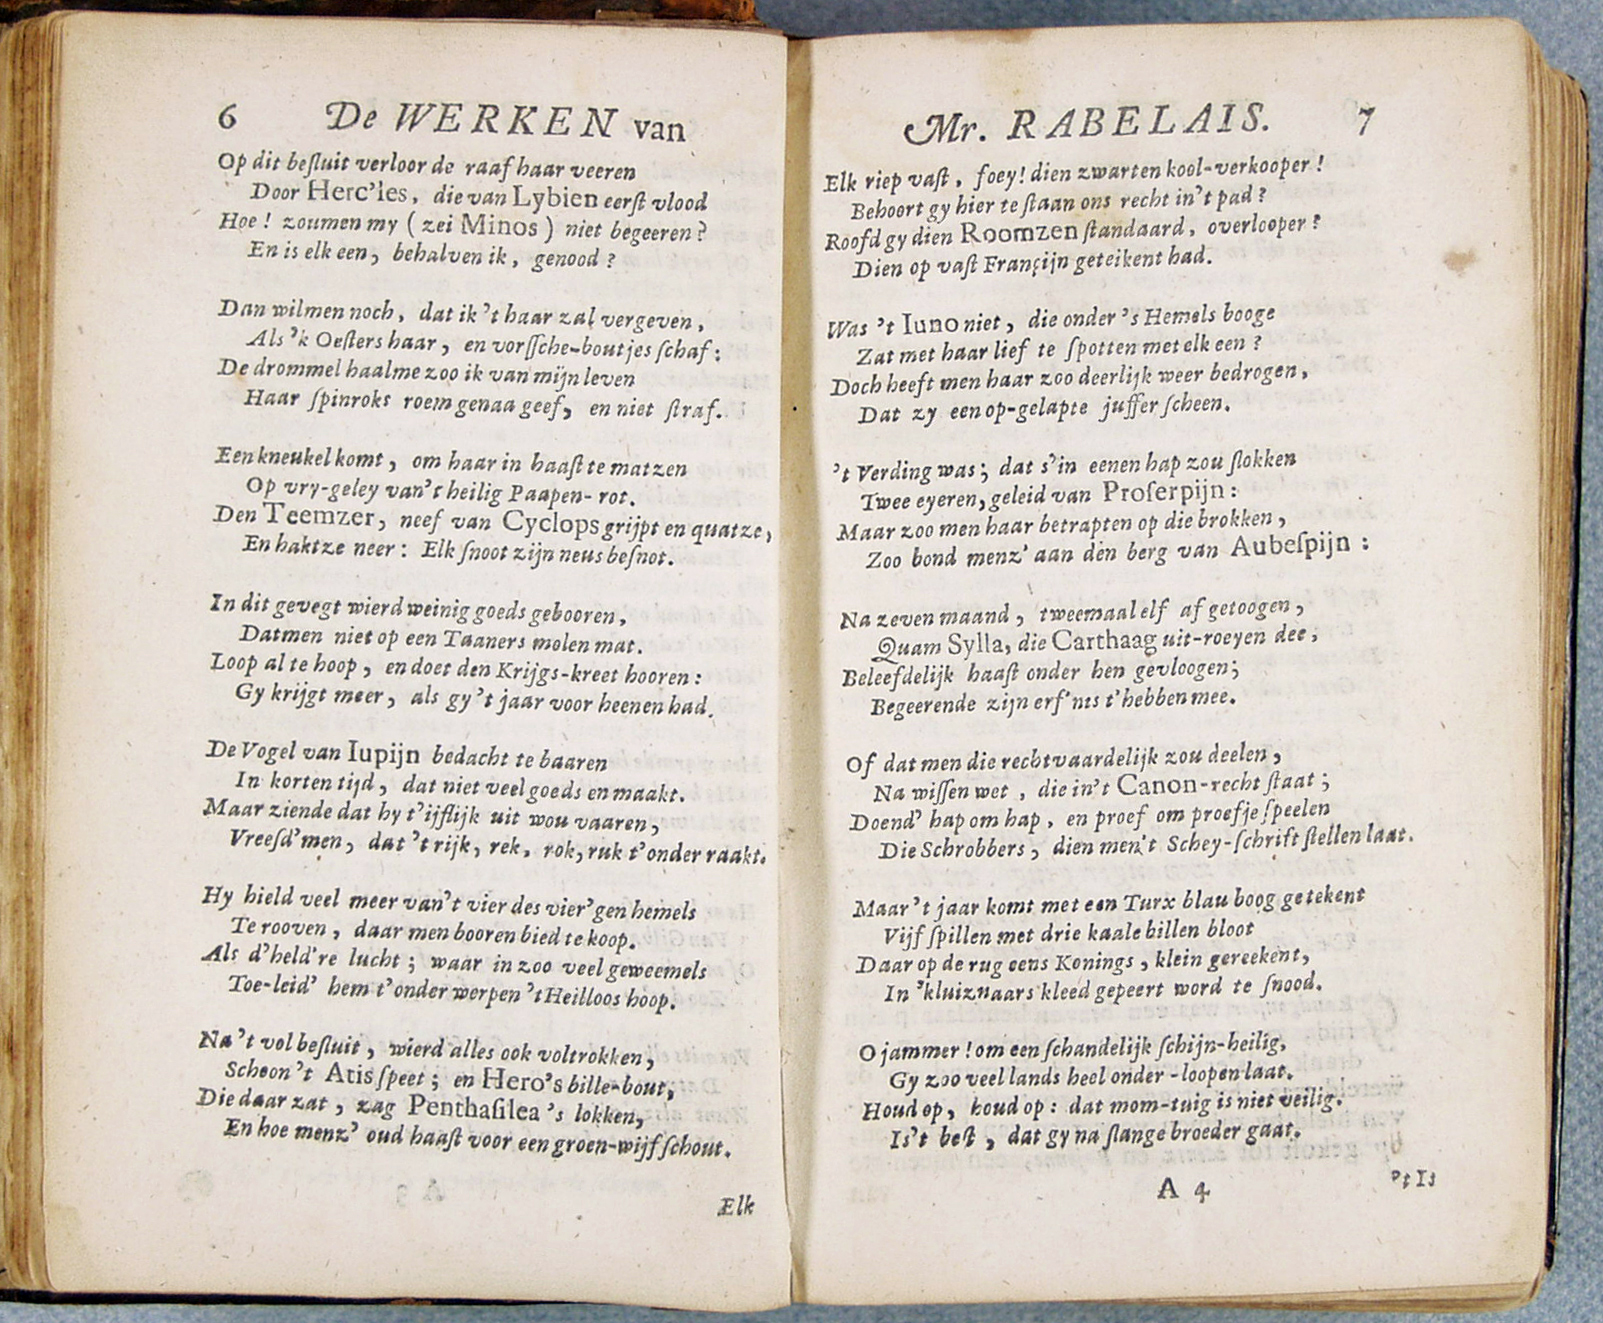 6 De WERKEN van
Op dit beſluit verloor de raaf haar veeren
Door Herc'les, die van Lybien eerſt vlood
Hoe! zoumen my (zei Minos) niet begeeren?
En is elk een, behalven ik, genood?
Dan wilmen noch, dat ik 't haar zal vergeven,
Als 'k Oeſters haar, en vorſſche-boutjes ſchaf:
De drommel haalme zoo ik van mijn leven
Haar ſpinroks roem genaa geef, en niet ſtraf.
Een kneukel komt, om haar in haaſt te matzen
Op vry-geley van't heilig Paapen-rot.
Den Teemzer, neef van Cyclops grijpt en quatze,
En haktze neer: Elk ſnoot zijn neus beſnot.
In dit gevegt wierd weinig goeds gebooren,
Datmen niet op een Taaners molen mat.
Loop al te hoop, en doet den Krijgs-kreet hooren:
Gy krijgt meer, als gy 't jaar voor heenen had.
De Vogel van Iupijn bedacht te baaren
In korten tijd, dat niet veel goeds en maakt.
Maar ziende dat hy t'ijſlijk uit wou vaaren,
Vreeſd'men, dat 't rijk, rek, rok, ruk t'onder raakt.
Hy hield veel meer van't vier des vier'gen hemels
Te rooven, daar men booren bied te koop.
Als d'held're lucht; waar in zoo veel geweemels
Toe-leid' hem t'onderwerpen 't Heilloos hoop.
Na 't vol beſluit, wierd alles ook voltrokken,
Schoon 't Atis ſpeet; en Hero's bille-bout,
Die daar zat, zag Penthaſilea's lokken,
En hoe menz' oud haaſt voor een groen-wijf ſchout.
Ælk
Mr. RABELAIS. 7
Elk riep vaſt, foey! dien zwarten kool-verkooper!
Behoort gy hier te ſtaan ons recht in't pad?
Roofd gy dien Roomzen ſtandaard, overlooper?
Dien op vaſt Françijn geteikent had.
Was 't Iuno niet, die onder 's Hemels booge
Zat met haar lief te ſpotten met elk een?
Doch heeft men haar zoo deerlijk weer bedrogen,
Dat zy een op-gelapte juffer ſcheen.
't Verding was; dat s'in eenen hap zou ſlokken
Twee eyeren, geleid van Proſerpijn:
Maar zoo men haar betrapten op die brokken,
Zoo bond menz' aan den berg van Aubeſpijn:
Na zeven maand, tweemaal elf afgetoogen,
Quam Sylla, die Carthaag uit-roeyen dee,
Beleefdelijk haaſt onder hen gevloogen;
Begeerende zijn erf'nis t'hebben mee.
Of dat men die rechtvaardelijk zou deelen,
Na wiſſen wet, die in't Canon-recht ſtaat;
Doend' hap om hap, en proef om proefje ſpeelen
Die Schrobbers, dien men't Schey-ſchrift ſtellen laat.
Maar 't jaar komt met een Turx blau boog getekent
Vijf ſpillen met drie kaale billen bloot
Daar op de rug eens Konings, klein gereekent,
In 'kluiznaars kleed gepeert word te ſnood.
O jammer! om een ſchandelijk ſchijn-heilig,
Gy zoo veel lands heel onder-loopen laat.
Houd op, houd op: dat mom-tuig is niet veilig.
Is't beſt, dat gy na ſlange broeder gaat.
A 4 't Is